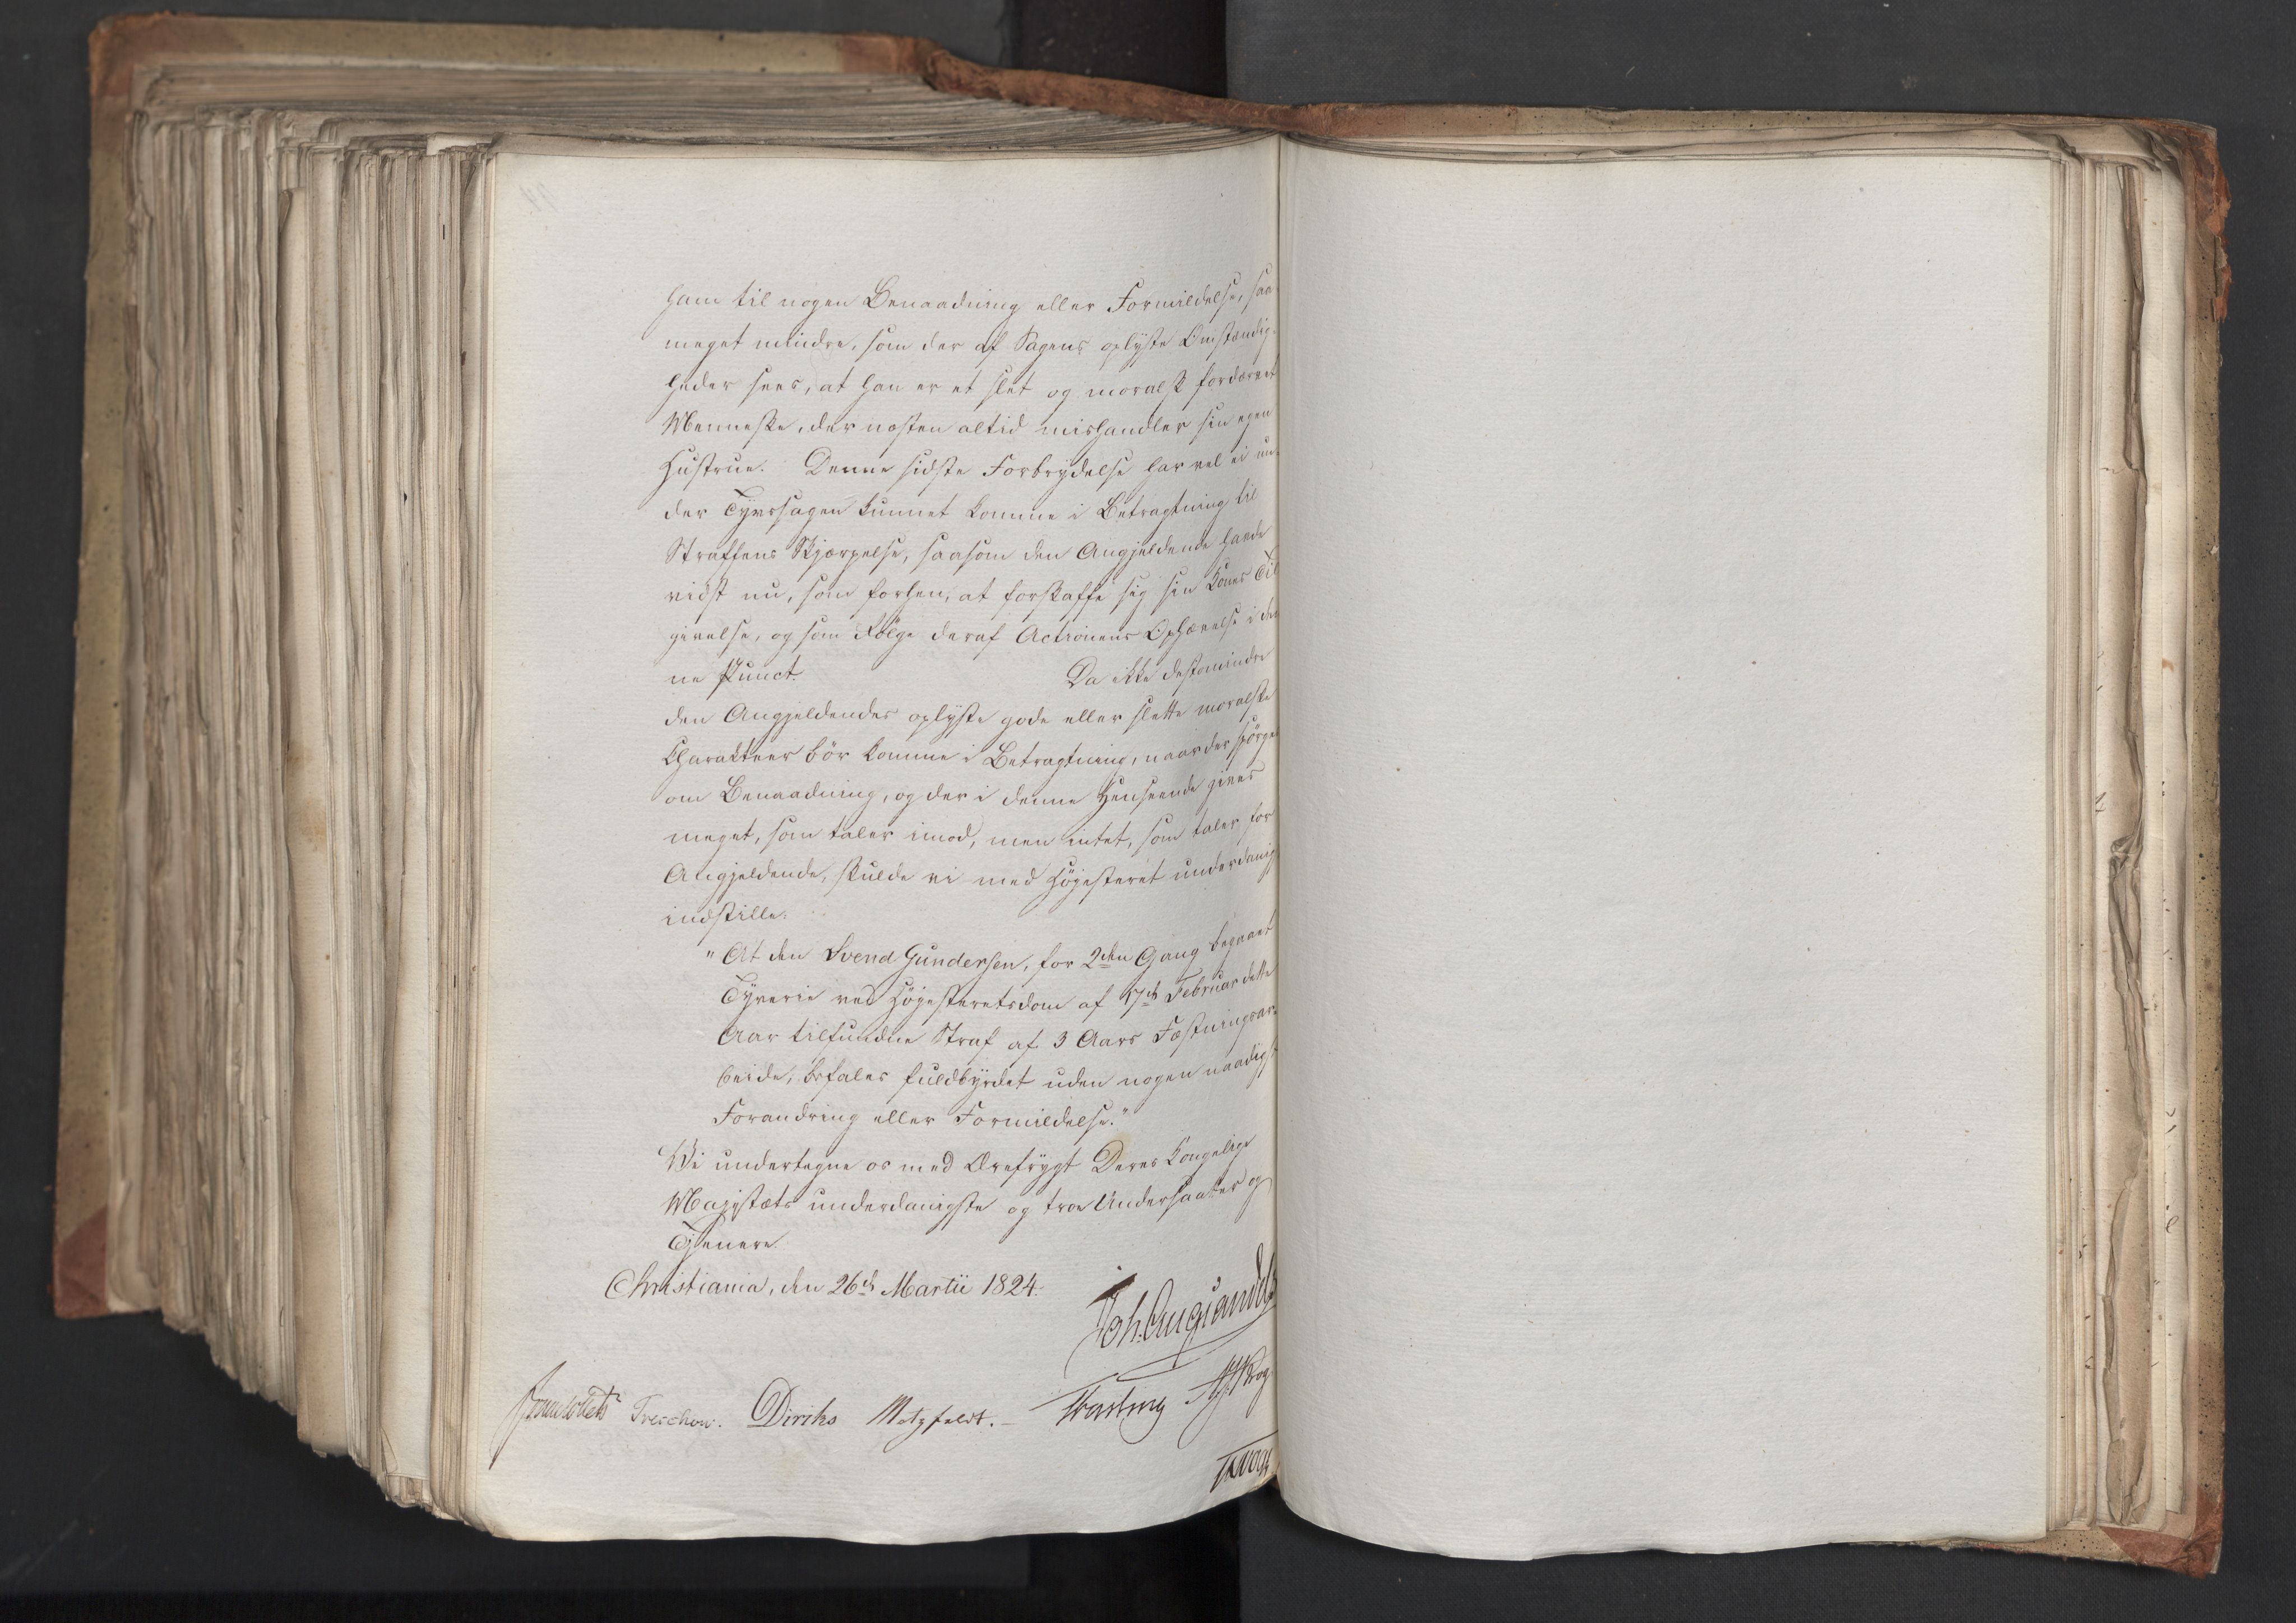 ham til nogen Benaadning eller Formildelse, saa
meget mindre, som der af Sagens oplyste Omstændig-
heder sees, at han er et slet og moralsk fordærvet
Menneske, der næsten altid mishandler sin egen
Hustrue. Denne sidste Forbrydelse har vel ei un-
der Tyvssagen kunnet komme i Betragtning til
Straffens Skjærpelse, saasom den Angjeldende havde
vidst nu, som forhen, at forskaffe sig sin Kones Til
givelse, og som Følge deraf Actionens Ophævelse i den
ne Punct. Da ikke destomindre
den Angjeldendes oplyste gode eller slette moralske
Charakteer bör komme i Betragtning, naar der spörges
om Benaadning, og der i denne Henseende gives
meget, som taler imod, men intet, som taler for
Angjeldende, skulde vi med Höjesteret underdanigst
indstille:
"At den Svend Gundersen, for 2den Gang begaaet
Tyverie ved Höjesteretsdom af 17de Februar dette
Aar tilfundne Straf af 3 Aars Fæstningsar-
beide, befales fuldbyrdet uden nogen naadigst
Forandring eller Formildelse."
Vi undertegne os med Ærefrygt Deres Kongelige
Majestæts underdanigste og troe Undersaatter og
Tjenere
Christiania, den 26de Martii 1824.
Joh. Aug. Sandels
Sommerhielm Treschow. Diriks Motzfeldt. Fasting Krog
Vogt